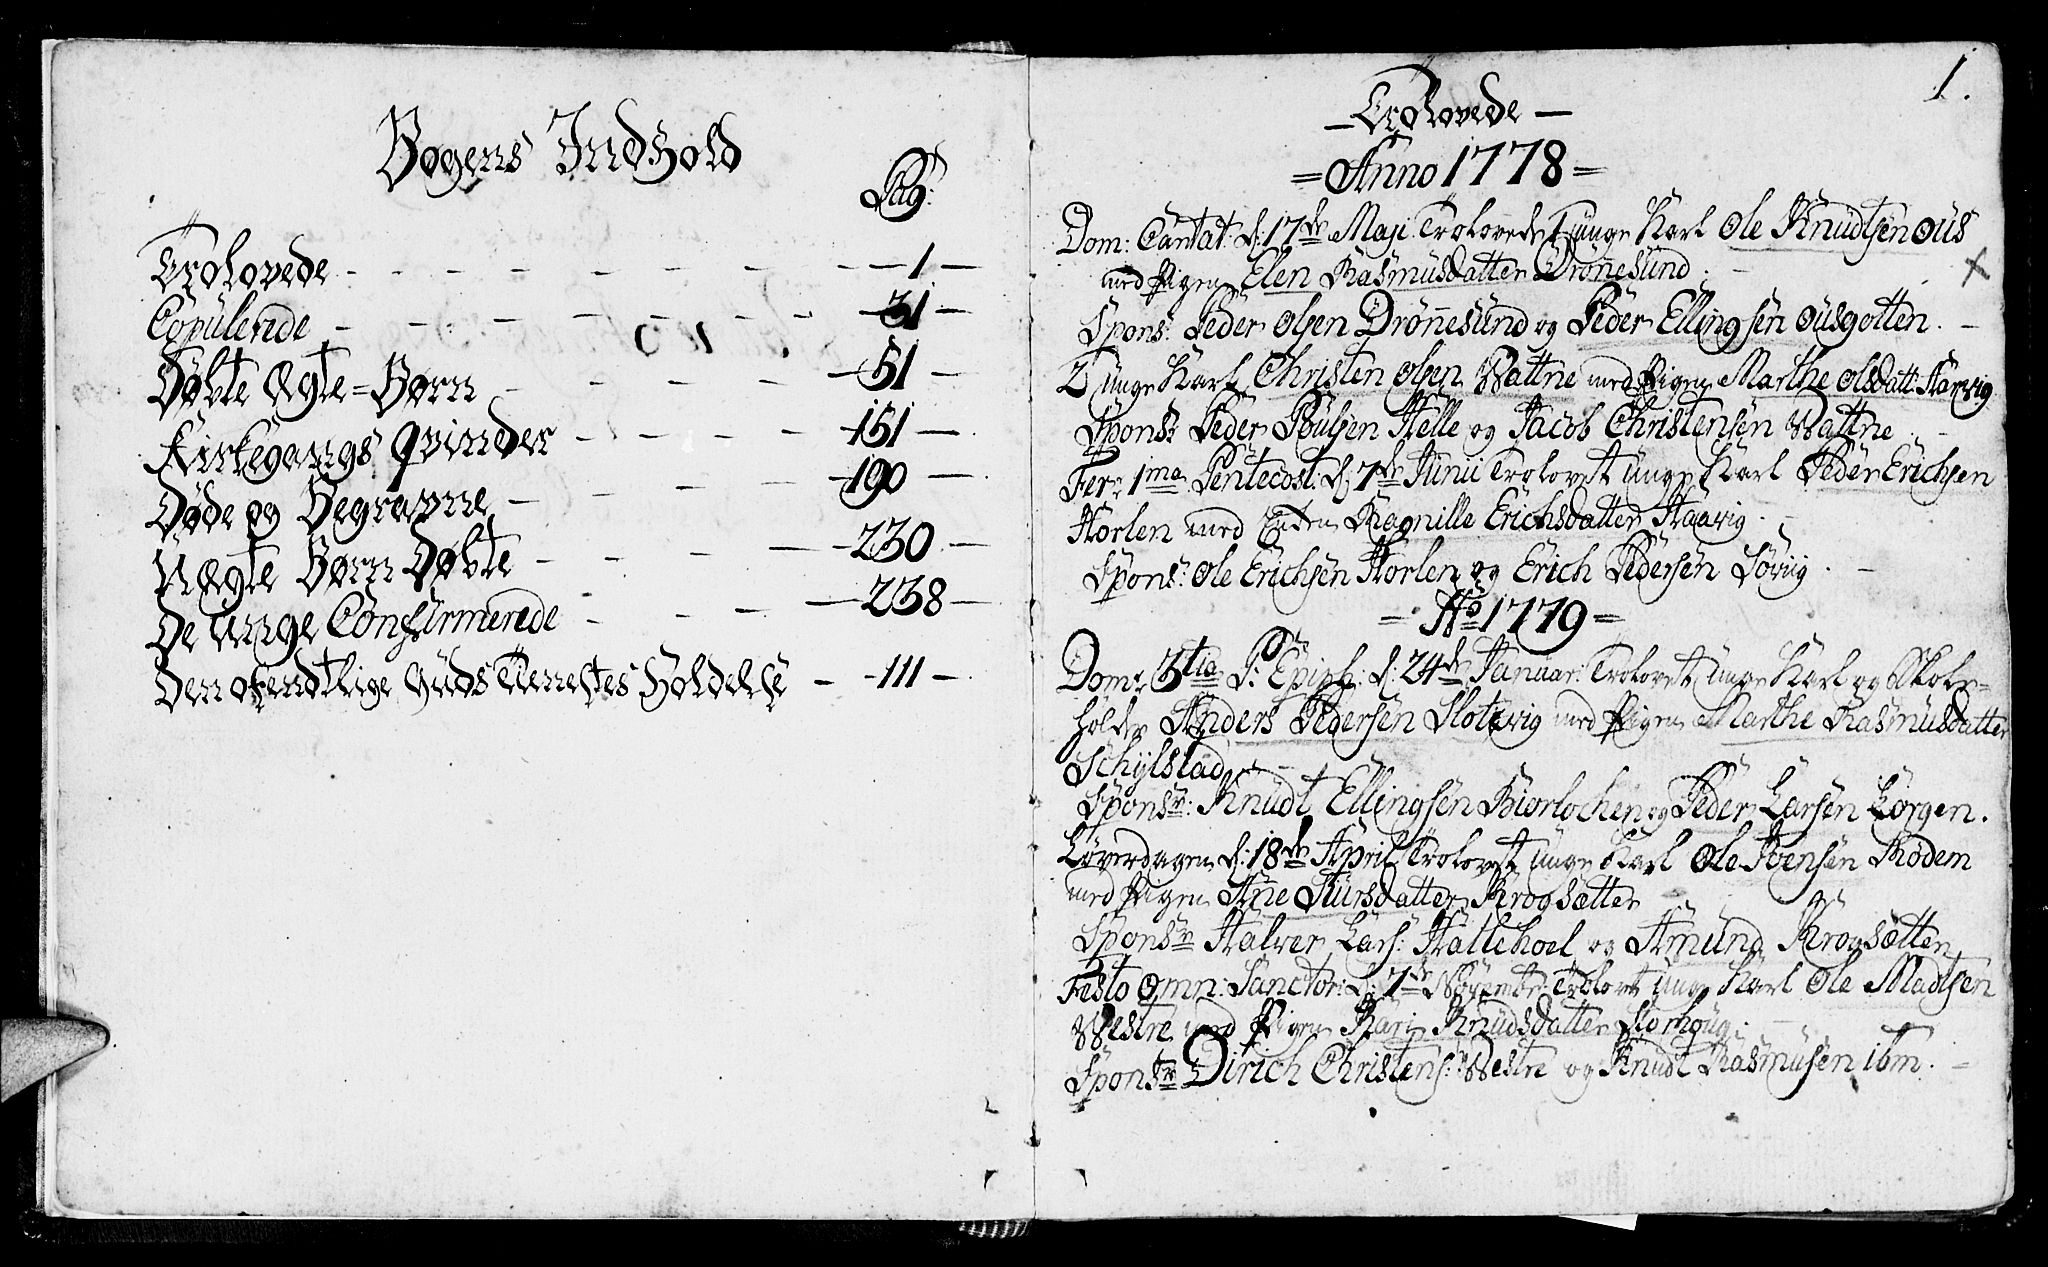 Bogens Indhold
Pag:
Trolovede - - - - - - - - 1 -
Copulerede - - - - - - - - 31 -
Døbte Ægte=Børn - - - - - 51 -
Kirkegangs Qvinder - - - - - 151 -
Døde og Begravne - - - - - 190 -
Uægte Børn Døbte - - - - 230 -
De Unge Confirmerede - - - - 238 -
Den ofendtlige Guds Tienestes Holdelse - - 111 -
1.
- Trolovede -
= Anno 1778 =
Dom: Cantat: d: 17de Maji Trolovede 1 unge Karl Ole Knudtsen Ous
med Pigen Elen Rasmusdatter Drönesund. -
Spons: Peder Olsen Drönnesund og Peder Ellingsen Ousgotten. -
2 unge Karl Christen Olsen Wattne med Pigen Marthe Olsdatt: Harvig
Sponsr: Peder Poulsen Helle og Jacob Christensen Wattne. -
Fer: 1ma Pentecost: d: 7de Junii Trolovet unge Karl Peder Erichsen
Horlen med Enken Ragnille Erichsdatter Haavig. -
Spons: Ole Erichsen Horlen og Erich Pedersen Sövig. -
= Ao 1779 =
Dom: 3tia P: Epiph: d: 24de Januar: Trolovet unge Karl og Skole=
holder Anders Pedersen Slotevig med Pigen Marthe Rasmusdatter
Schylstad -
Sponsr: Knudt Ellingsen Biorlochen og Peder Larsen Lorgen.
Løverdagen d: 18de April Trolovet unge Karl Ole Ivensen Rødem
med Pigen Ane Stursdatter Krogsætter
Sponsr Halver Lars: Hallehoel og Amund Krogsætter
Festo Omn: Sanctor: d: 7de Novembr: Trolovet unge Karl Ole Madtsen
Westre med Pigen Kari Knudsdatter Storhoug. -
Sponsr Dirich Christens: Westre og Knudt Rasmusen ibm. -